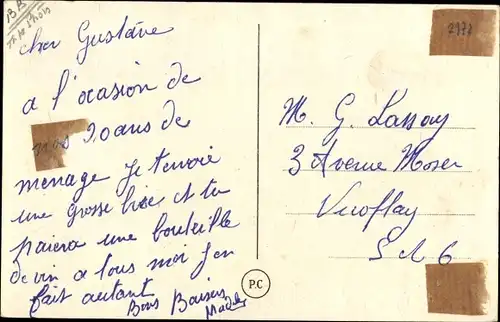 cher Gustave
a l'ocasion de
20 ans de
menage je t'envoie
une grosse bise et tu
paiera une bouteille
de vin a tous moi j'en
fait autant
Bons Baisers
P.C
2972
M. G. Lassoy
3 Avenue Moser
Viroflay
S et O